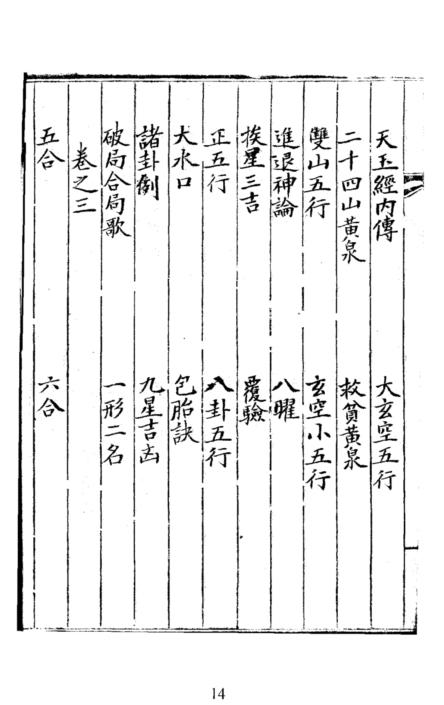 天玉經內傳　大玄空五行
二十四山黃泉　救貧黃泉
雙山五行　玄空小五行
進退神論　八曜
挨星三吉　覆驗
正五行　八卦五行
大水口　包胎訣
諸卦例　九星吉凶
破局合局歌　一形二名
卷之三
五合　六合
14